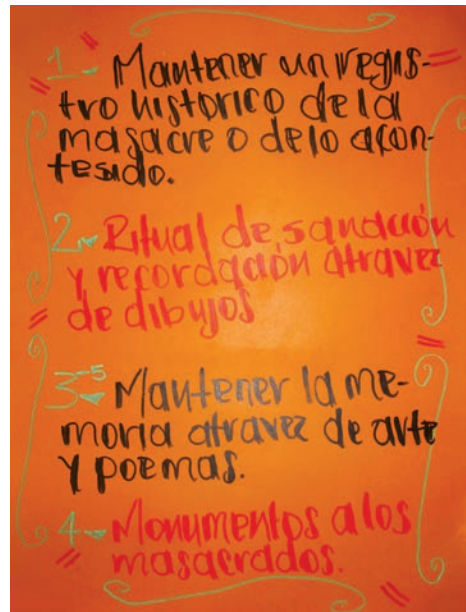 1- Mantener un regis-
tro historico de la
masacre o de lo acon-
tesido.
2- Ritual de sanación
y recordación atravez
de dibujos
3- Mantener la me-
moria atravez de arte
y poemas.
4- Monumentos a los
masacrados.